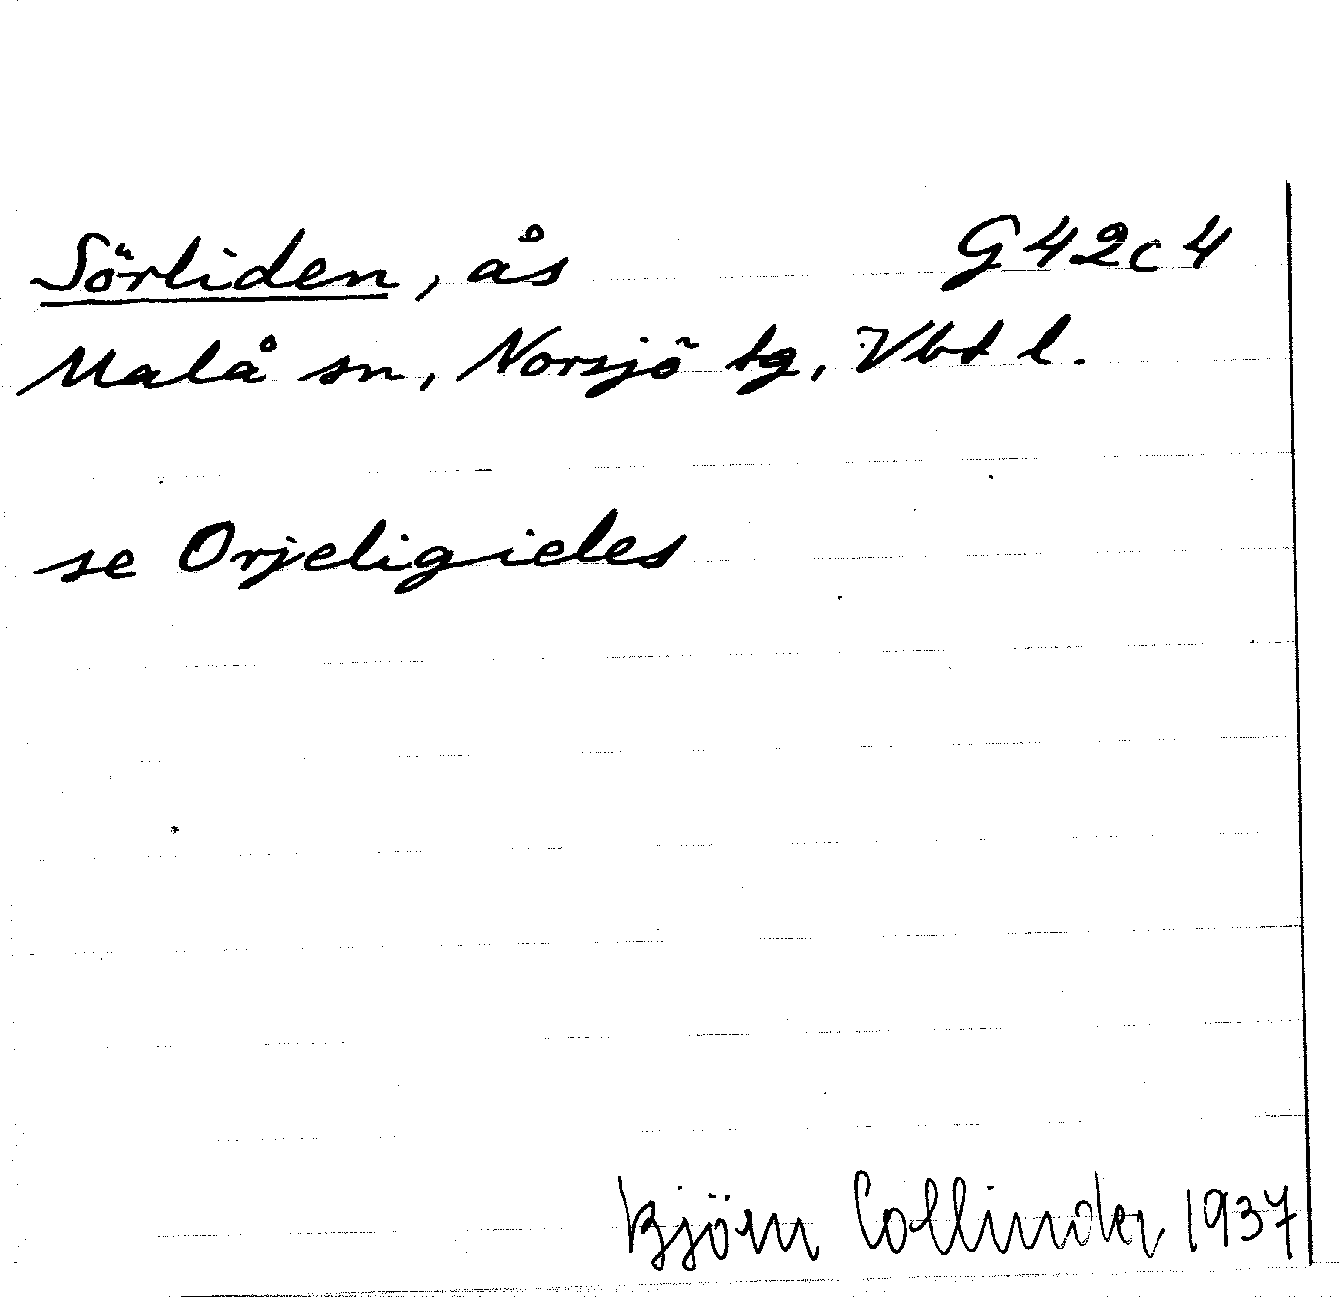 Sörliden, ås G42c4
Malå sn, Norsjö tg, Vbt l.
se Orjeligieles
Björn Collinder 1937